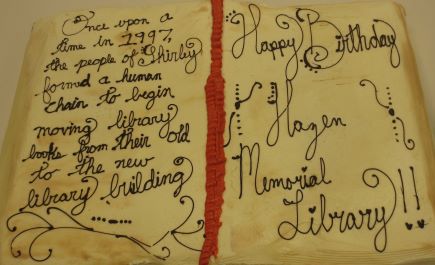 Once upon a
time in 1997,
the people of Shirley
formed a human
chain to begin
moving library
books from their old
to the new
library building
Happy Birthday
Hazen
Memorial
Library!!